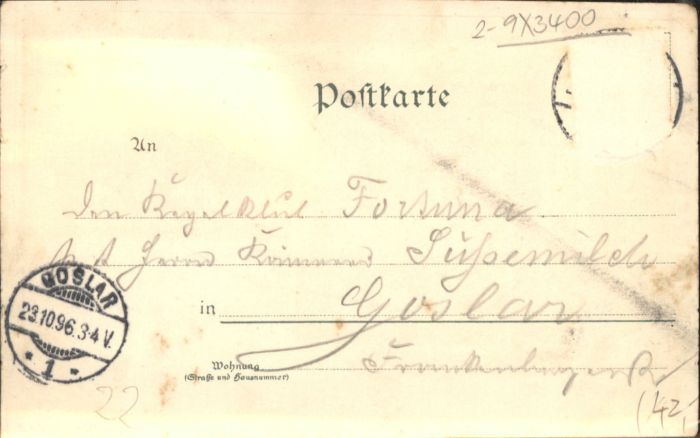 2-9X3400
Postkarte
An
Den Kegelklub Fortuna
Herrn Süssemilch
in Goslar
Wohnung
(Straße und Hausnummer)
GOSLAR
23.10.96.3-4 V.
* 1 *
22
(42,